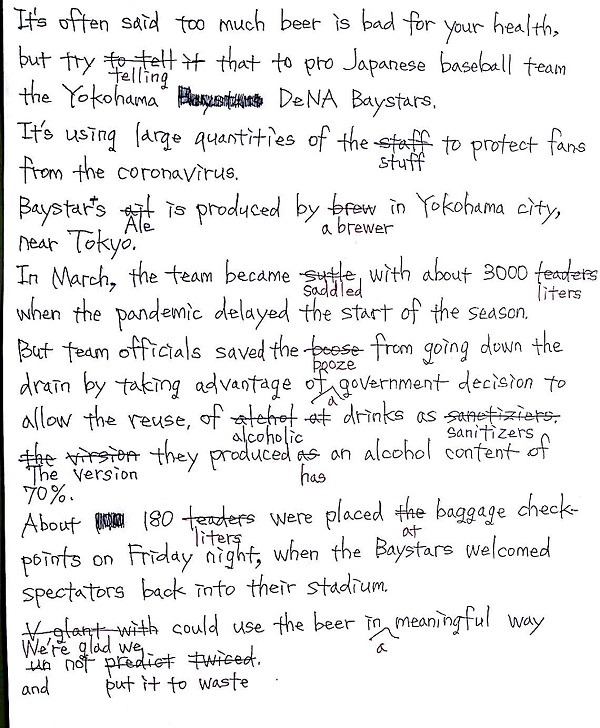 It's often said too much beer is bad for your health,
but try to tell it that to pro Japanese baseball team
telling
the Yokohama DeNA Baystars.
It's using large quantities of the staff to protect fans
stuff
from the coronavirus.
Baystar's ail is produced by brew in Yokohama city,
Ale a brewer
near Tokyo.
In March, the team became sutle with about 3000 teaders
saddled liters
when the pandemic delayed the start of the season.
But team officials saved the boose from going down the
booze
drain by taking advantage of government decision to
a
allow the reuse, of alchol at drinks as sanetiziers.
alcoholic sanitizers
the virsion they produced as an alcohol content of
The version has
70%.
About 180 teaders were placed the baggage check-
liters at
points on Friday night, when the Baystars welcomed
spectators back into their stadium.
V glant with could use the beer in meaningful way
We're glad we a
un not predict twiced.
and put it to waste